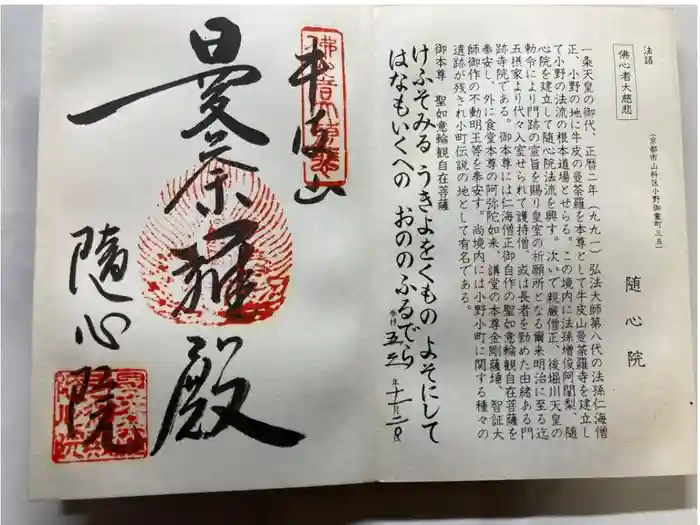 法話
佛心者大慈悲
(京都市山科区小野御霊町三五)
随心院
一条天皇の御代、正暦二年(九九一)弘法大師第八代の法孫仁海僧
正、小野の地に牛皮の曼荼羅を本尊として牛皮山曼荼羅寺を建立し
て小野の法流の根本道場とせらる。この境内に法孫増俊阿闍梨、随
心院を建立して随心院法流を興す。次いで親厳僧正、後堀川天皇の
勅令により門跡の宣旨を賜り皇室の祈願所となる爾来明治に至る迄
五摂家より代々入室せられて護持僧、或は長者を勤めた由緒ある門
跡寺院である。御本尊には仁海僧正御自作の聖如意輪観自在菩薩を
奉安し、外に食堂本尊の阿弥陀如来、講堂の本尊金剛薩埵、智証大
師御作の不動明王等を奉安す。尚境内には小野小町に関する種々の
遺跡が残され小町伝説の地として有名である。
御本尊 聖如意輪観自在菩薩
けふそみる うきよをくものよそにして
はなもいくへの おののふるでら
奉拝 五三年十一月二〇日
牛皮山
曼荼羅殿
随心院